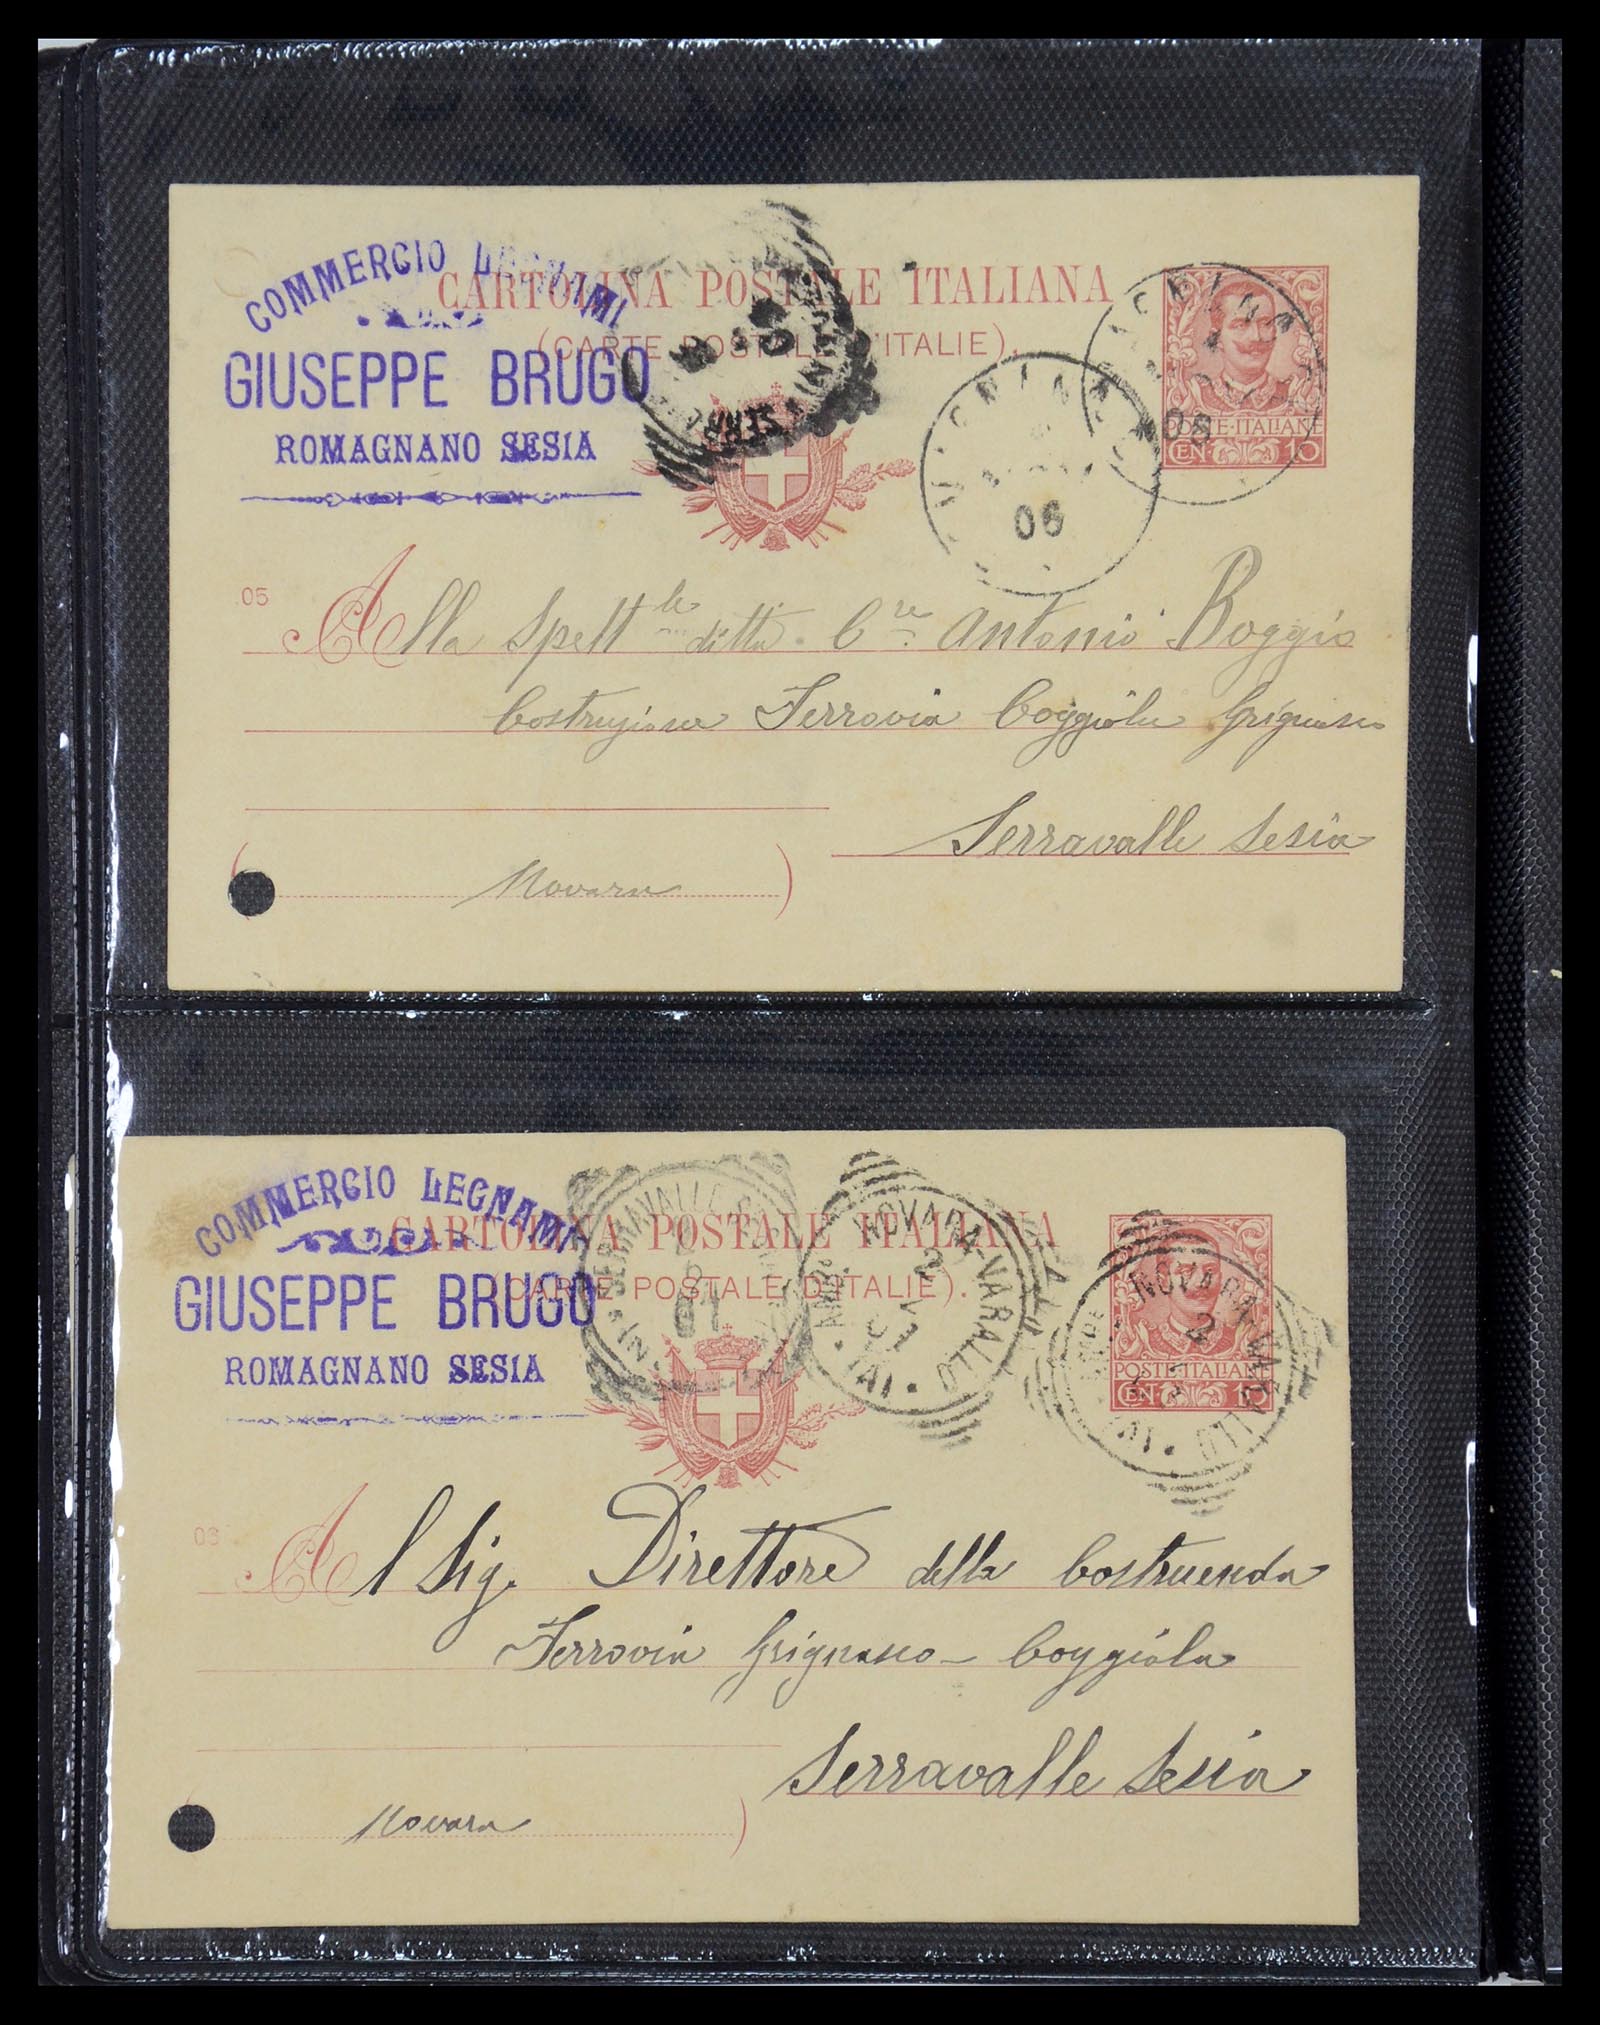 COMMERCIO LEGNAMI
GIUSEPPE BRUGO
ROMAGNANO SESIA
CARTOLINA POSTALE ITALIANA
(CARTE POSTALE D'ITALIE).
06
06
POSTE·ITALIANE
CEN. 10
05
Alla Spett.le ditta Antonio Boggio
Costruzione Ferrovia Coggiola Grignasco
Serravalle Sesia
(Novara)
COMMERCIO LEGNAMI
GIUSEPPE BRUGO
ROMAGNANO SESIA
CARTOLINA POSTALE ITALIANA
(CARTE POSTALE D'ITALIE).
SERRAVALLE
NOVARA-VARALLO
2
NOVARA-VARALLO
2
POSTE·ITALIANE
CEN. 10
Al Sig. Direttore della Costruenda
Ferrovia Grignasco - Coggiola
Serravalle Sesia
(Novara)